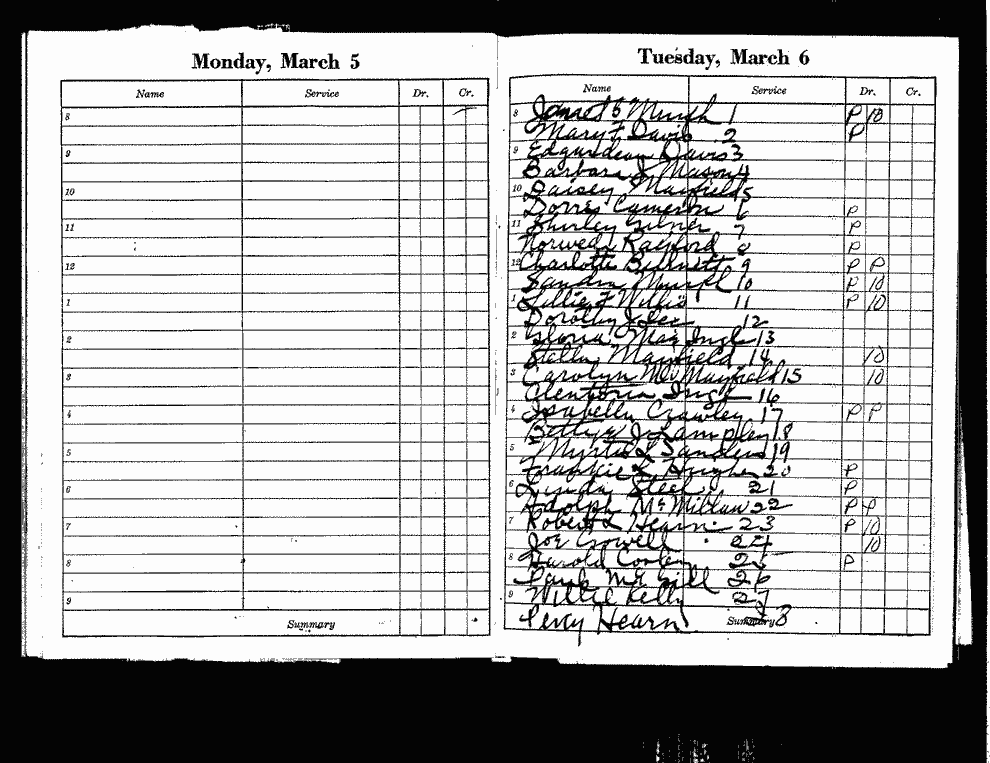 Monday, March 5
Name Service Dr. Cr.
8
9
10
11
12
1
2
3
4
5
6
7
8
9
Summary
Tuesday, March 6
Name Service Dr. Cr.
8 1 P 10
Mary F Davis 2 P
9 Davis 3
Barbara J Mason 4
10 Daisey Mayfield 5
Cameron 6 P
11 Shirley 7 P
8 P
12 Charlotte Burnett 9 P P
Sandra 10 P 10
1 Lillie F Willis 11 P 10
Dorothy 12
2 Gloria Mae 13
Stella Mayfield 14 10
3 Carolyn Mc Mayfield 15 10
16
4 Isabella Crawley 17 P P
Bettye J Lampley 18
5 L Sanders 19
Frankie L Hughes 20 P
6 Linda Steel 21 P
Adolph McMillan 22 P P
7 Robert L Hearn 23 P 10
Joe Crowell 24 10
8 Harold 25 P
McGill 26
9 Willie Kelly 27
Percy Hearn Summary 8